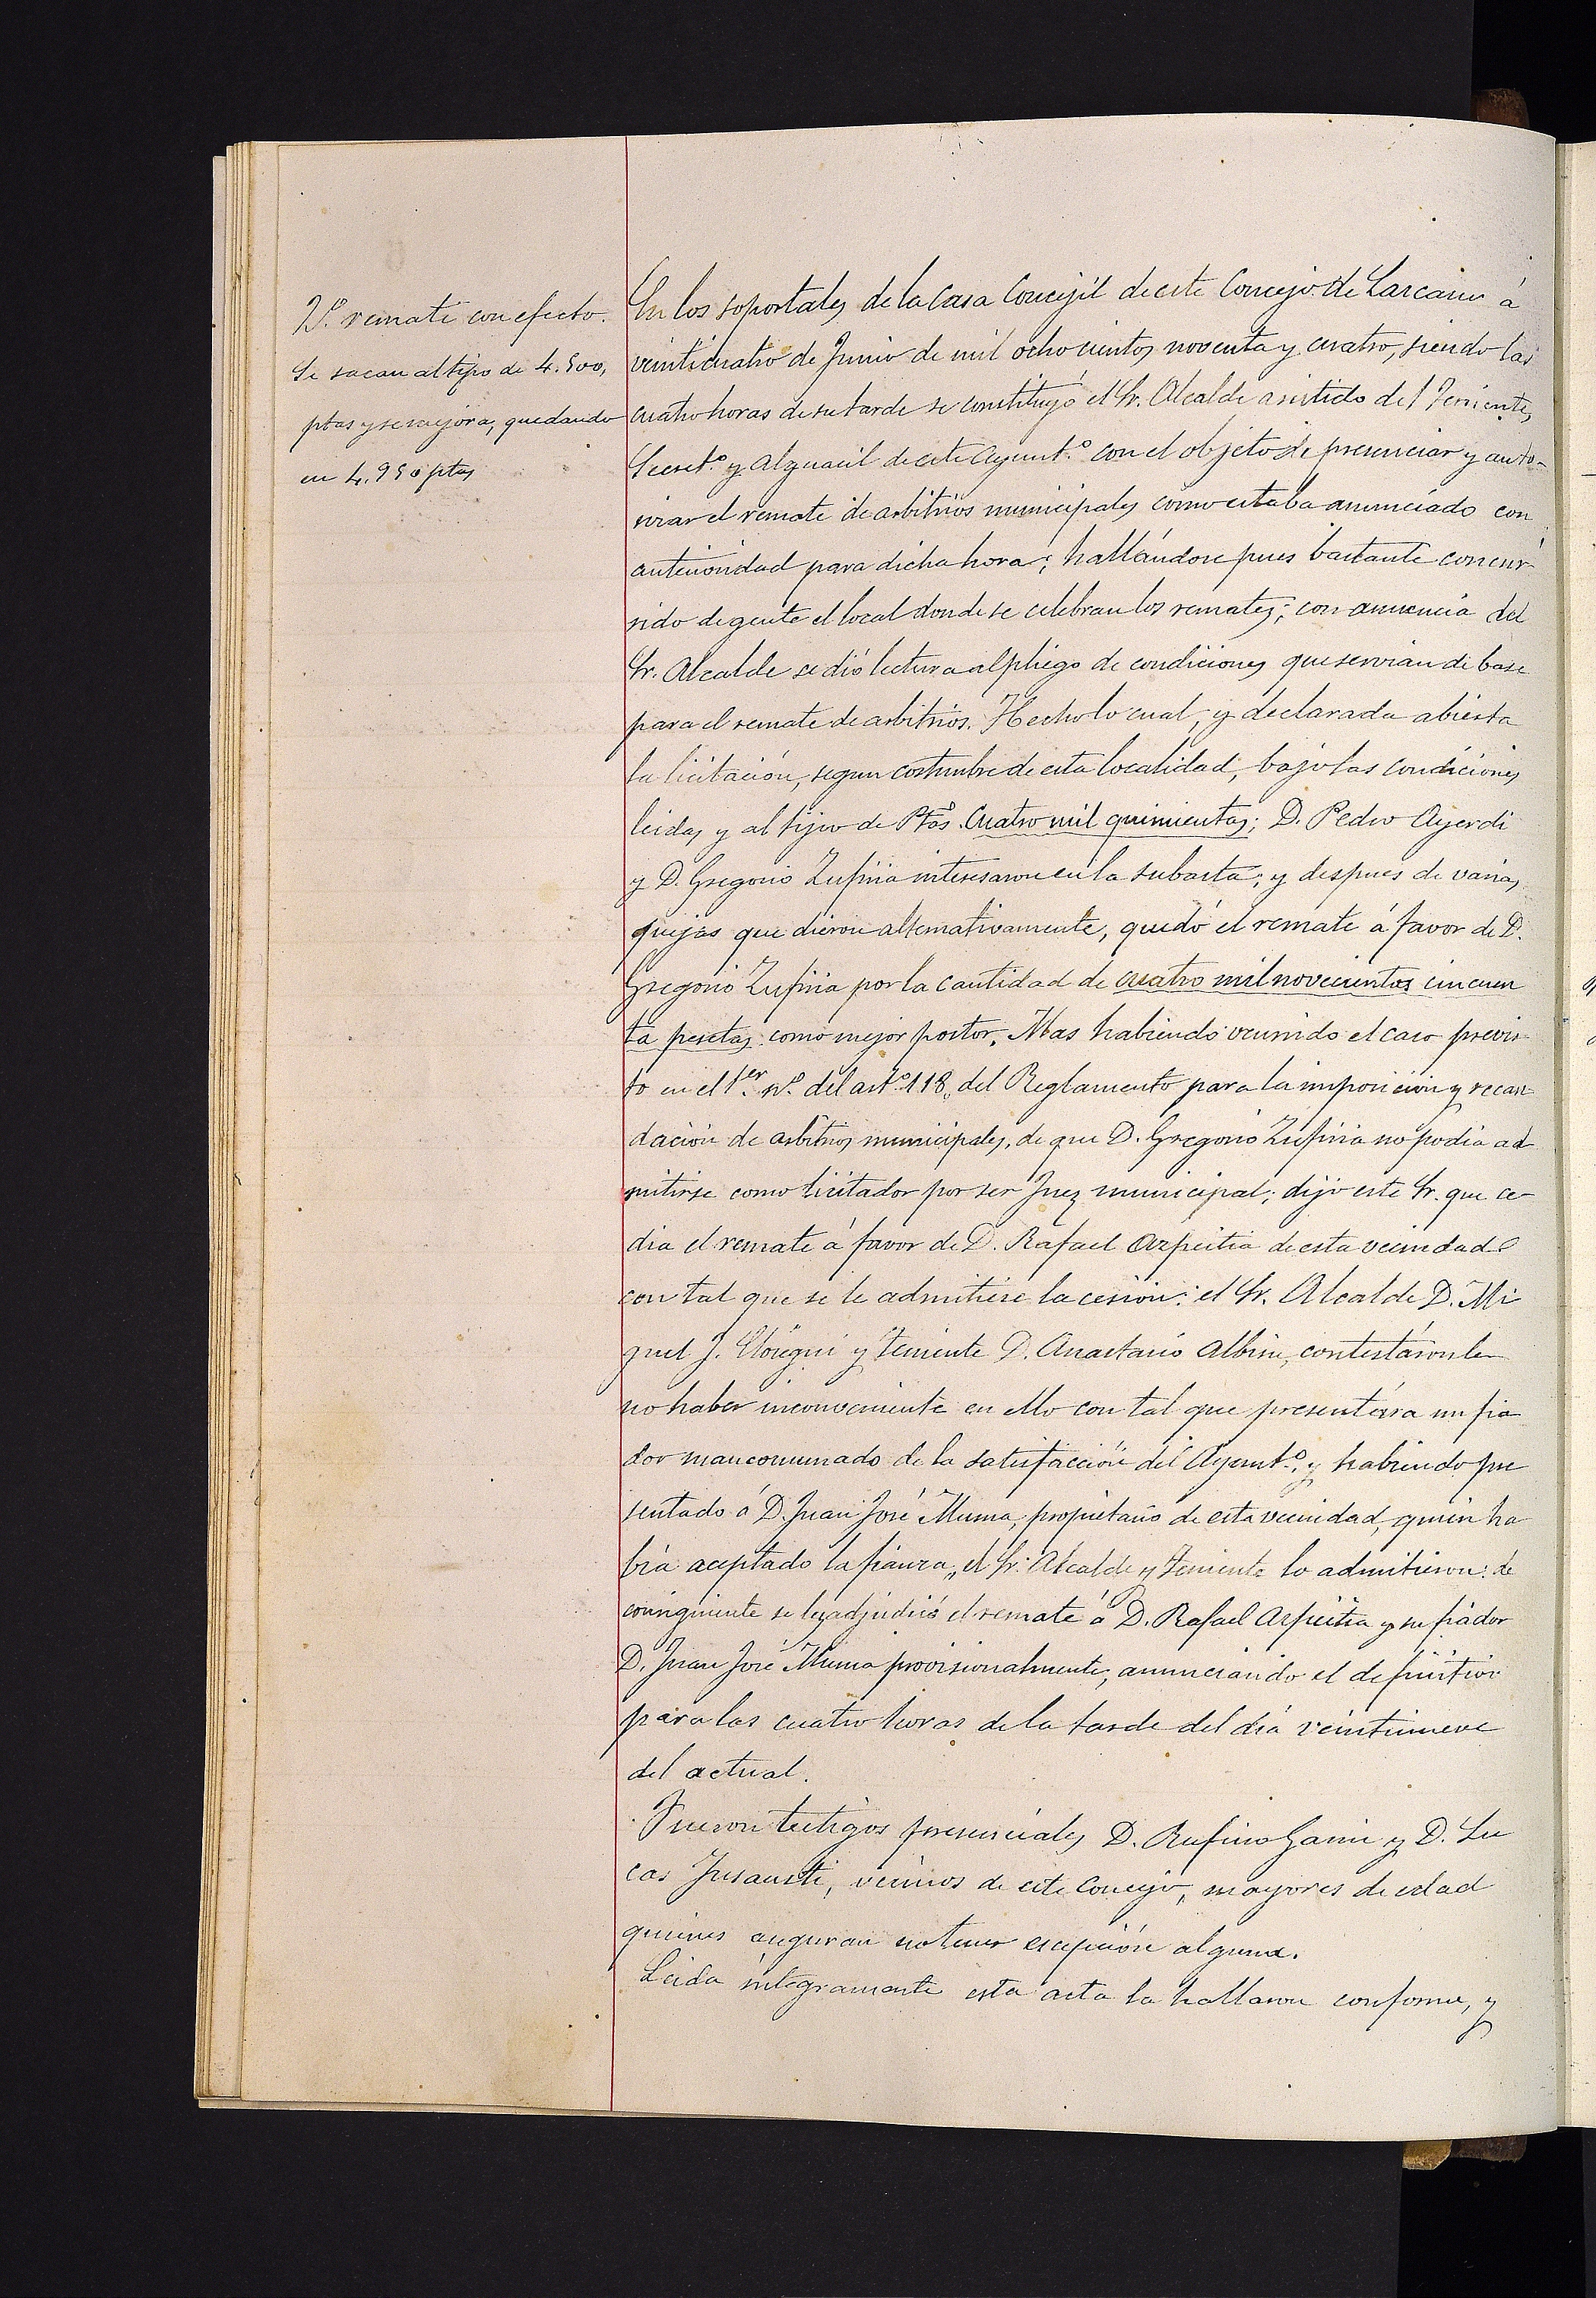 1º. remate con efecto.
Se sacan al tipo de 4.500,
ptas y se mejora, quedando
en 4.950 ptas
En los soportales de la Casa Concejil de este Concejo de Lazcano á
veinticuatro de Junio de mil ochocientos noventa y cuatro, siendo las
cuatro horas de su tarde se constituyó el Sr. Alcalde asistido del Teniente,
Secret.º y Alguacil de este Ayunt.º con el objeto de presenciar y auto-
rizar el remate de arbitrios municipales como estaba anunciado con
anterioridad para dicha hora; hallándose pues bastante concur
rido de gente el local donde se celebran los remates; con anuencia del
Sr. Alcalde se dió lectura al pliego de condiciones que servian de base
para el remate de arbitrios. Hecho lo cual, y declarada abierta
la licitación, segun costumbre de esta localidad, bajo las condiciones
leidas y al tipo de Ptas. Cuatro mil quinientas; D. Pedro Ayerdi
y D. Gregorio Zufiria interesaron en la subasta; y despues de varias
pujas que dieron alternativamente, quedó el remate á favor de D.
Gregorio Zufiria por la cantidad de cuatro mil novecientos cincuen
ta pesetas como mejor postor. Mas habiendo ocurrido el caso previs
to en el 1.er nº. del art.º 118, del Reglamento para la imposicion y recau
dación de arbitrios municipales, de que D. Gregorio Zufiria no podia ad
mitirse como licitador por ser Juez municipal; dijo este Sr. que ce-
dia el remate á favor de D. Rafael Azpeitia de esta vecindad
con tal que se le admitiese la cesión: el Sr. Alcalde D. Mi
guel J. Elósegui y Teniente D. Anastasio Albisu, contestáronle
no haber inconveniente en ello con tal que presentára un fia
dor mancomunado de la satisfacción del Ayunt.º, y habiendo pre
sentado á D. Juan José Muma, propietario de esta vecindad, quien ha
bía aceptado la fianza, el Sr. Alcalde y Teniente lo admitieron: de
consiguiente se les adjudicó el remate á D. Rafael Azpeitia y su fiador
D. Juan José Muma provisionalmente, anunciando el definitivo
para las cuatro horas de la tarde del día veintinueve
del actual.
Fueron testigos presenciales D. Rufino Garin y D. Lu
cas Insausti, vecinos de este Concejo, mayores de edad
quienes aseguran no tener escepción alguna.
Leida integramente esta acta la hallaron conforme, y